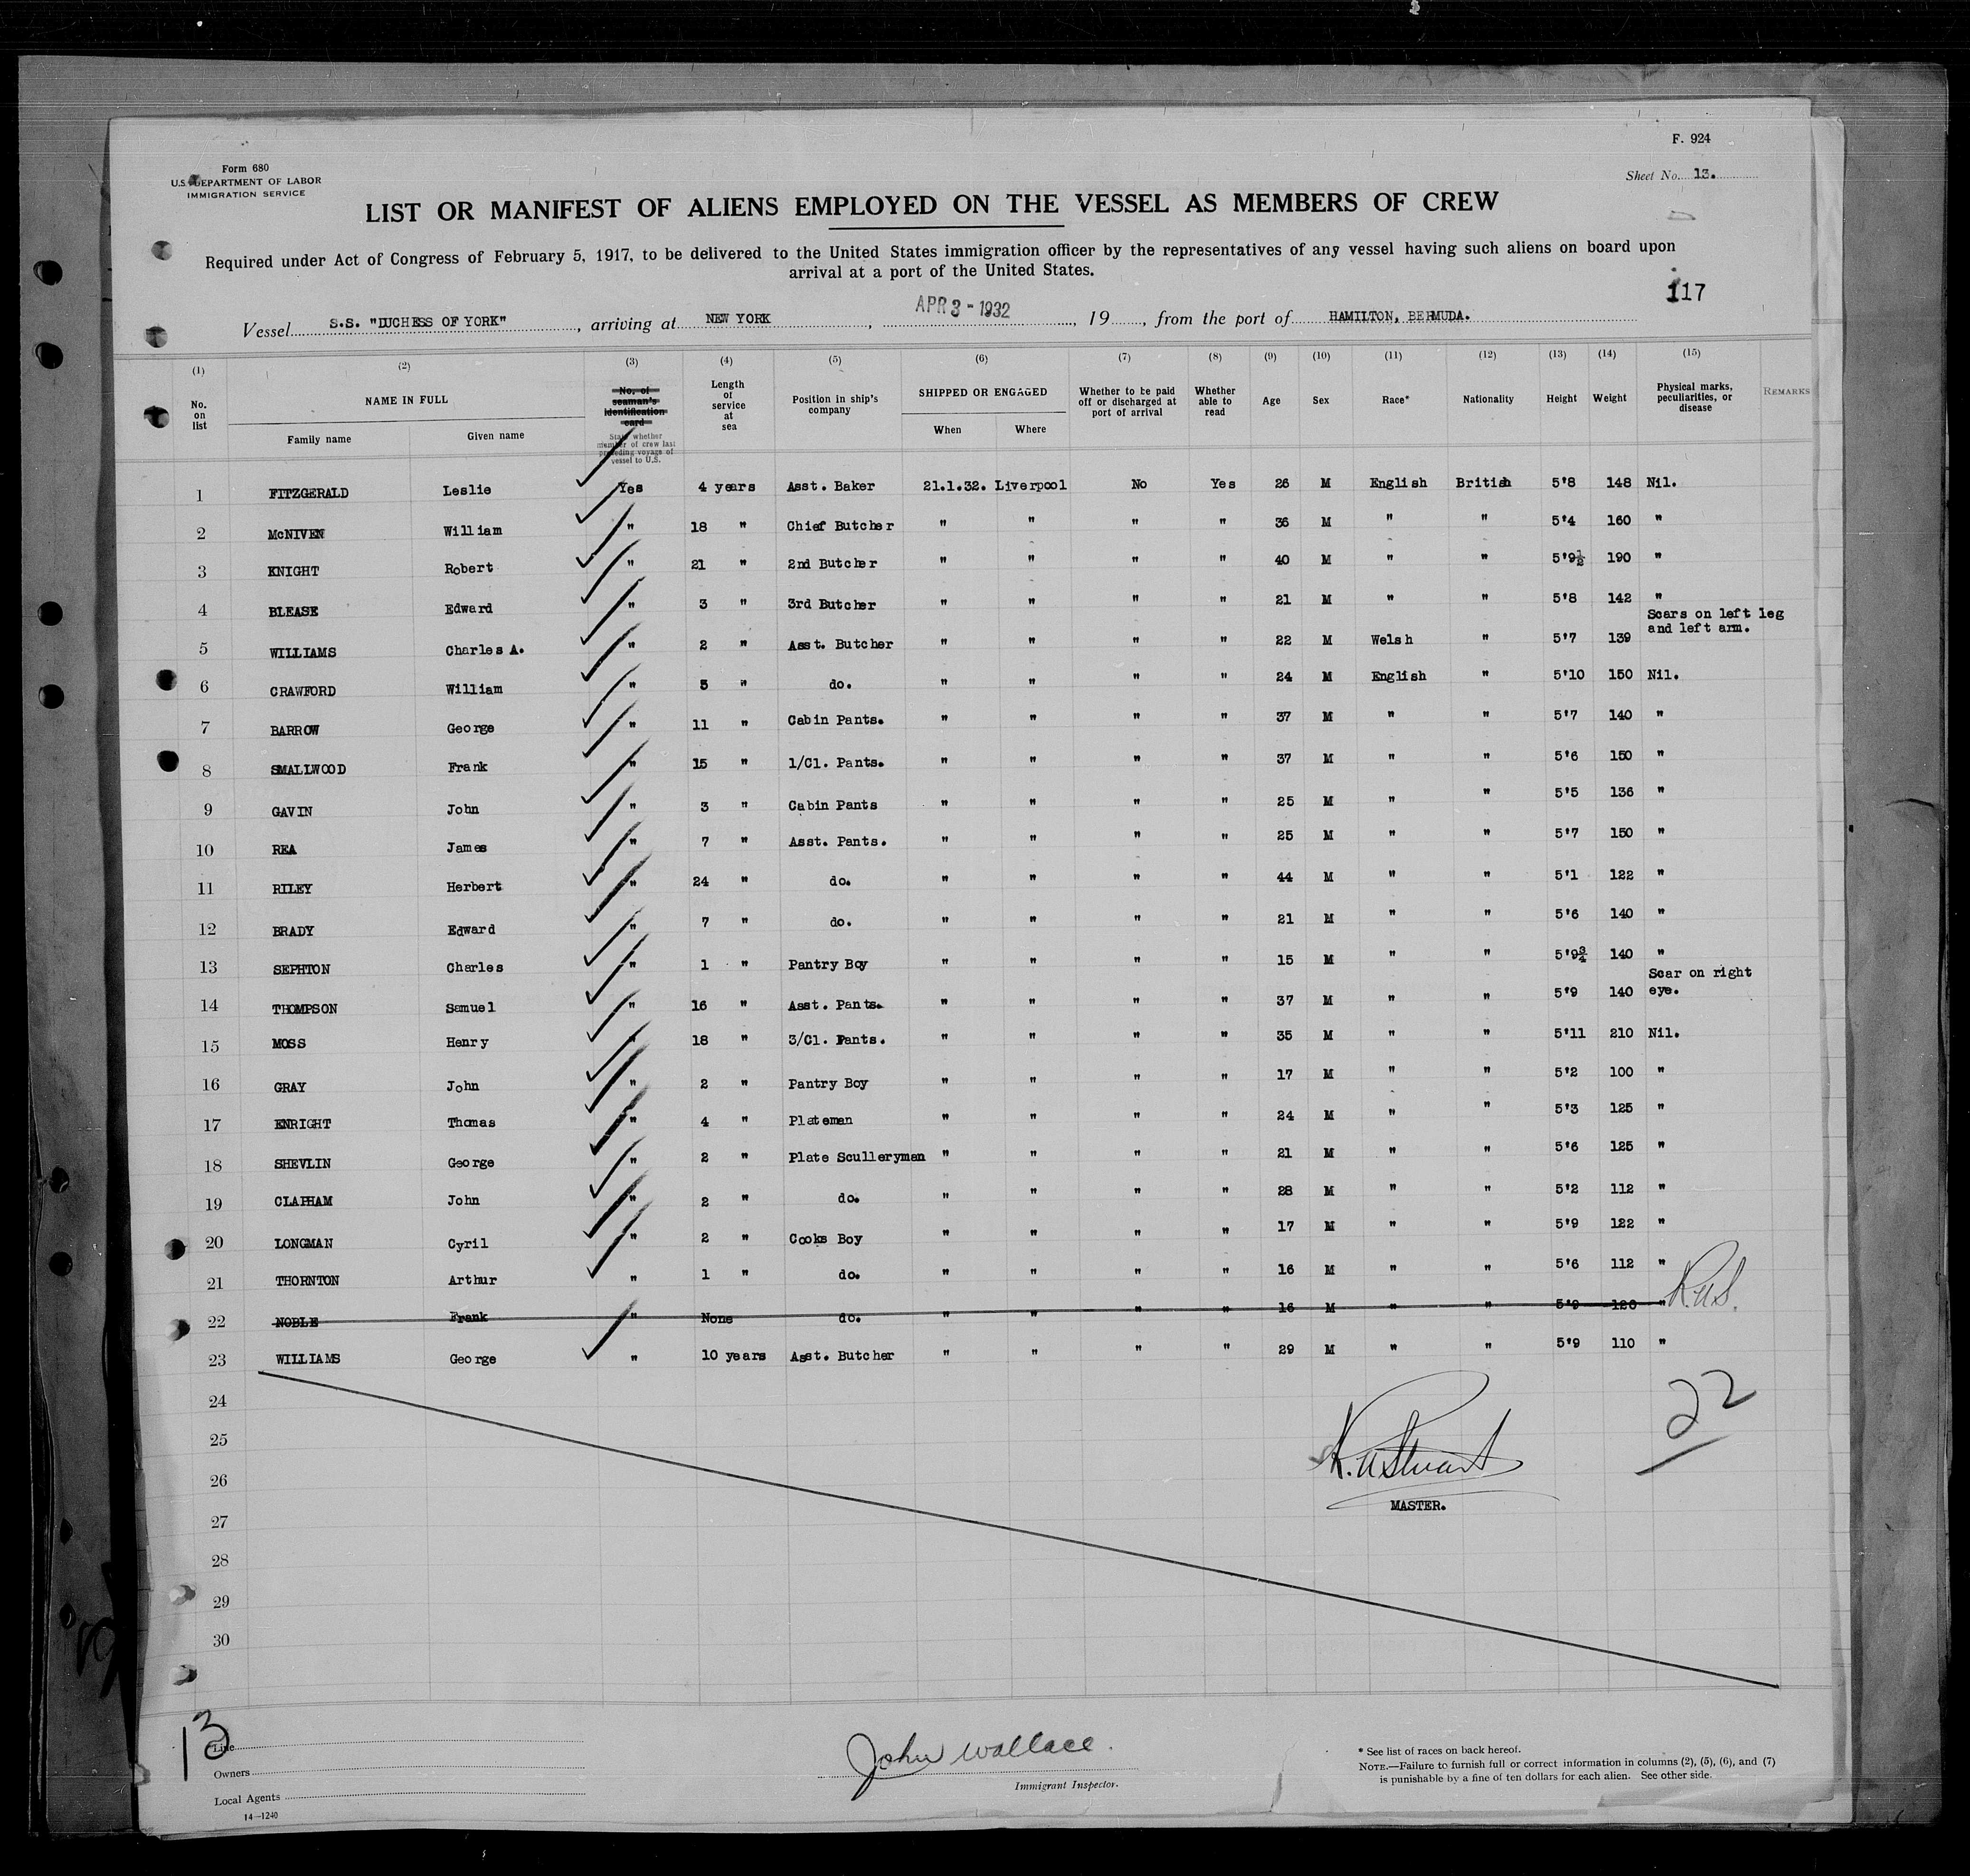 F. 924
Form 680
U.S. DEPARTMENT OF LABOR
IMMIGRATION SERVICE
Sheet No. 13.
LIST OR MANIFEST OF ALIENS EMPLOYED ON THE VESSEL AS MEMBERS OF CREW
Required under Act of Congress of February 5, 1917, to be delivered to the United States immigration officer by the representatives of any vessel having such aliens on board upon
arrival at a port of the United States.
117
Vessel S.S. "DUCHESS OF YORK", arriving at NEW YORK, APR 3 - 1932, 19, from the port of HAMILTON, BERMUDA.
(1) (2) (3) (4) (5) (6) (7) (8) (9) (10) (11) (12) (13) (14) (15)
No. on list
NAME IN FULL
Family name Given name
No. of seaman's identification card
State whether member of crew last preceding voyage of vessel to U.S.
Length of service at sea
Position in ship's company
SHIPPED OR ENGAGED
When Where
Whether to be paid off or discharged at port of arrival
Whether able to read
Age Sex Race* Nationality Height Weight
Physical marks, peculiarities, or disease
REMARKS
1 FITZGERALD Leslie Yes 4 years Asst. Baker 21.1.32. Liverpool No Yes 26 M English British 5'8 148 Nil.
2 McNIVEN William " 18 " Chief Butcher " " " " 36 M " " 5'4 160 "
3 KNIGHT Robert " 21 " 2nd Butcher " " " " 40 M " " 5'9½ 190 "
4 BLEASE Edward " 3 " 3rd Butcher " " " " 21 M " " 5'8 142 "
5 WILLIAMS Charles A. " 2 " Asst. Butcher " " " " 22 M Welsh " 5'7 139 Scars on left leg and left arm.
6 CRAWFORD William " 5 " do. " " " " 24 M English " 5'10 150 Nil.
7 BARROW George " 11 " Cabin Pants. " " " " 37 M " " 5'7 140 "
8 SMALLWOOD Frank " 15 " 1/Cl. Pants. " " " " 37 M " " 5'6 150 "
9 GAVIN John " 3 " Cabin Pants " " " " 25 M " " 5'5 136 "
10 REA James " 7 " Asst. Pants. " " " " 25 M " " 5'7 150 "
11 RILEY Herbert " 24 " do. " " " " 44 M " " 5'1 122 "
12 BRADY Edward " 7 " do. " " " " 21 M " " 5'6 140 "
13 SEPHTON Charles " 1 " Pantry Boy " " " " 15 M " " 5'9¾ 140 "
14 THOMPSON Samuel " 16 " Asst. Pants. " " " " 37 M " " 5'9 140 Scar on right eye.
15 MOSS Henry " 18 " 3/Cl. Pants. " " " " 35 M " " 5'11 210 Nil.
16 GRAY John " 2 " Pantry Boy " " " " 17 M " " 5'2 100 "
17 ENRIGHT Thomas " 4 " Plateman " " " " 24 M " " 5'3 125 "
18 SHEVLIN George " 2 " Plate Sculleryman " " " " 21 M " " 5'6 125 "
19 CLAPHAM John " 2 " do. " " " " 28 M " " 5'2 112 "
20 LONGMAN Cyril " 2 " Cooks Boy " " " " 17 M " " 5'9 122 "
21 THORNTON Arthur " 1 " do. " " " " 16 M " " 5'6 112 "
22 NOBLE Frank " None do. " " " " 16 M " " 5'9 126 " R.N.S.
23 WILLIAMS George " 10 years Asst. Butcher " " " " 29 M " " 5'9 110 "
24
25
26
27
28
29
30
22
R.N. Stuart
MASTER.
13
Line
Owners
Local Agents
14-1240
John Wallace.
Immigrant Inspector.
* See list of races on back hereof.
NOTE.—Failure to furnish full or correct information in columns (2), (5), (6), and (7)
is punishable by a fine of ten dollars for each alien. See other side.